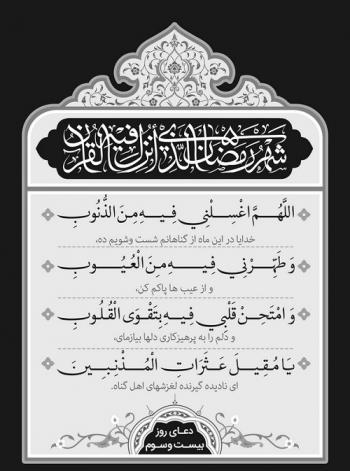 شهر رمضان الذي أنزل فيه القرآن
اللَّهُمَّ اغْسِلْنِي فِيهِ مِنَ الذُّنُوبِ
خدایا در این ماه از گناهانم شست وشویم ده،
وَ طَهِّرْنِي فِيهِ مِنَ الْعُيُوبِ
و از عیب ها پاکم کن،
وَ امْتَحِنْ قَلْبِي فِيهِ بِتَقْوَى الْقُلُوبِ
و دلم را به پرهیزکاری دلها بیازمای،
يَا مُقِيلَ عَثَرَاتِ الْمُذْنِبِينَ
ای نادیده گیرنده لغزشهای اهل گناه.
دعای روز
بیست وسوم